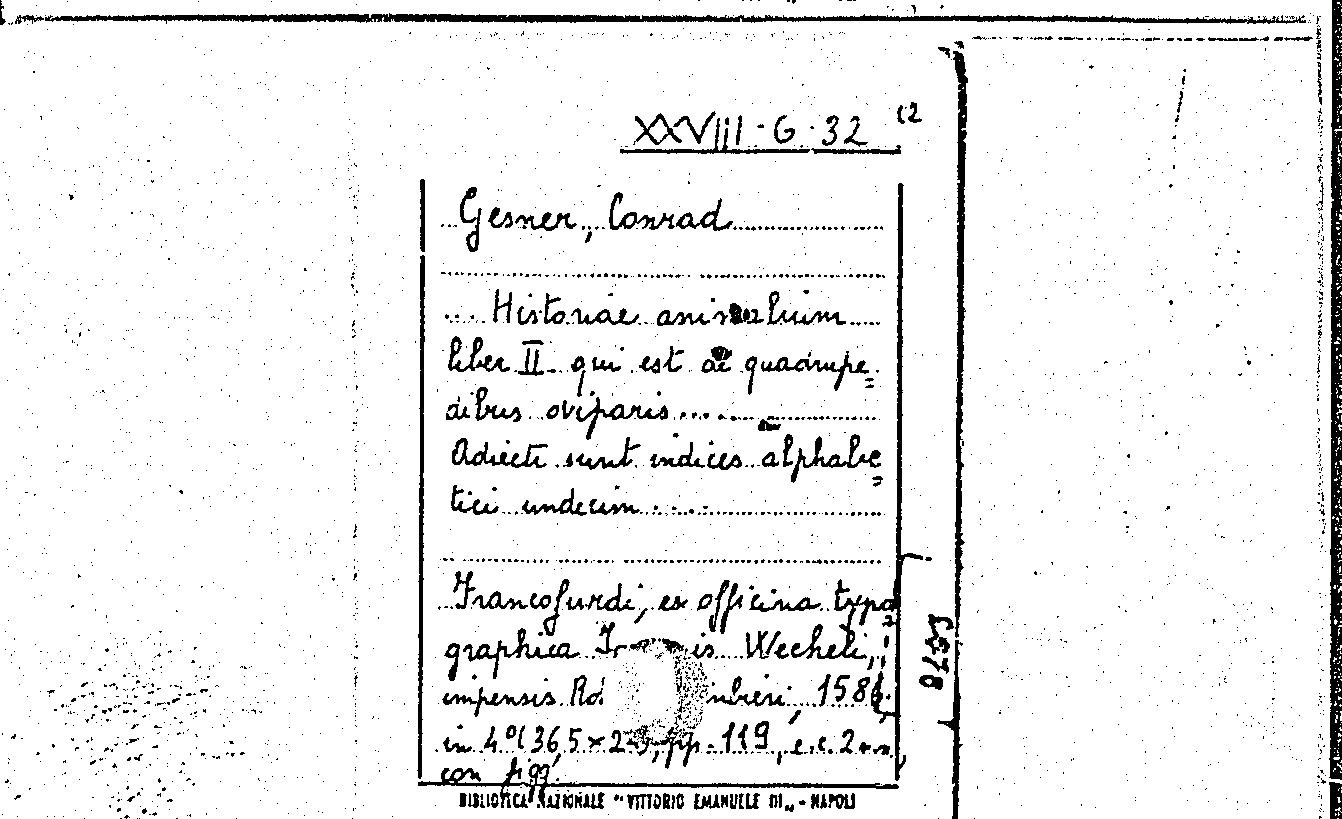 XXVIII · G · 32
12
Gesner, Conrad
... Historiae animalium
liber II qui est de quadrupe=
dibus oviparis ....
Adiecti sunt indices alphabe=
tici undecim ....
Francofurdi, ex officina typo
graphica Wecheli,
impensis 158
in 4° (36,5 × 2 , pp. 119, e c. 2 nn,
con figg.
BIBLIOTECA NAZIONALE "VITTORIO EMANUELE III„ - NAPOLI